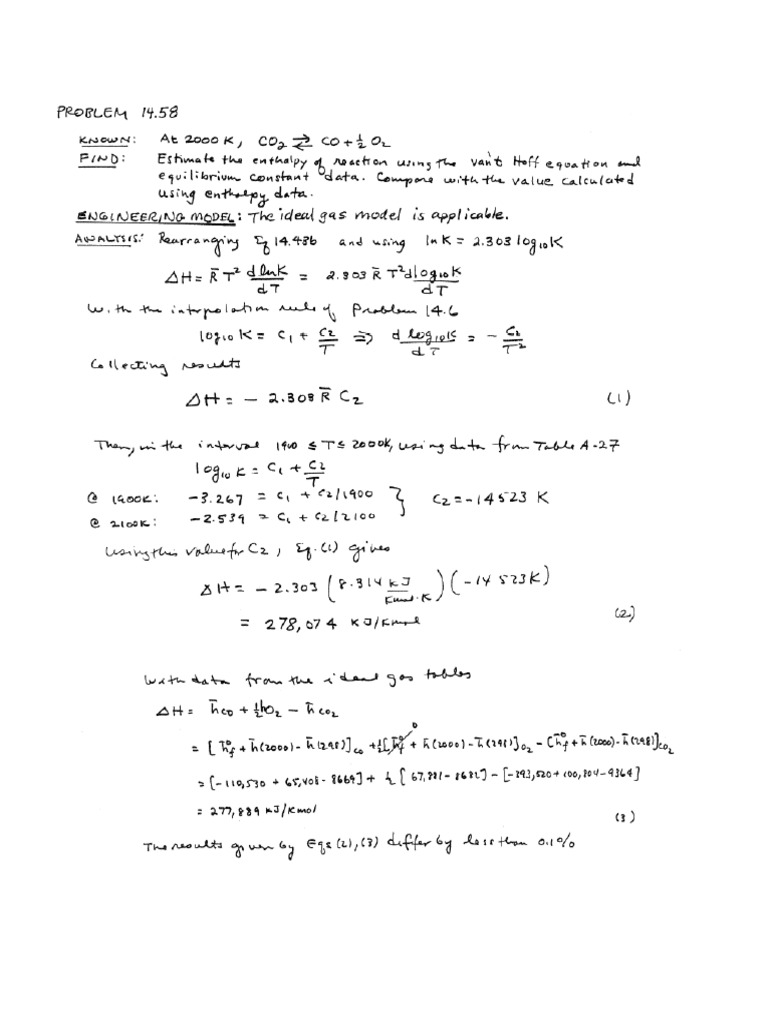 PROBLEM 14.58
KNOWN: At 2000 K, CO₂ ⇄ CO + ½ O₂
FIND: Estimate the enthalpy of reaction using the van't Hoff equation and
equilibrium constant data. Compare with the value calculated
using enthalpy data.
ENGINEERING MODEL: The ideal gas model is applicable.
ANALYSIS: Rearranging Eq 14.43b and using ln K = 2.303 log₁₀K
ΔH = R̄ T² d lnK / dT = 2.303 R̄ T² d log₁₀K / dT
With the interpolation rule of Problem 14.6
log₁₀ K = C₁ + C₂/T ⇒ d log₁₀K / dT = - C₂/T²
Collecting results
ΔH = - 2.308 R̄ C₂ (1)
Then, in the interval 1900 ≤ T ≤ 2000K, using data from Table A-27
log₁₀ K = C₁ + C₂/T
@ 1900K: -3.267 = C₁ + C₂/1900 } C₂ = -14523 K
@ 2100K: -2.539 = C₁ + C₂/2100
Using this value for C₂, Eq. (1) gives
ΔH = - 2.303 (8.314 kJ/kmol·K)(-14 523K)
= 278,074 kJ/kmol (2)
With data from the ideal gas tables
ΔH = h̄CO + ½h̄O₂ - h̄CO₂
= [h̄°f + h̄(2000) - h̄(298)]CO + ½[h̄°f⁰ + h̄(2000) - h̄(298)]O₂ - [h̄°f + h̄(2000) - h̄(298)]CO₂
= [-110,530 + 65,408 - 8669] + ½[67,881 - 8682] - [-393,520 + 100,804 - 9364]
= 277,889 kJ/kmol (3)
The results given by Eqs (2), (3) differ by less than 0.1%